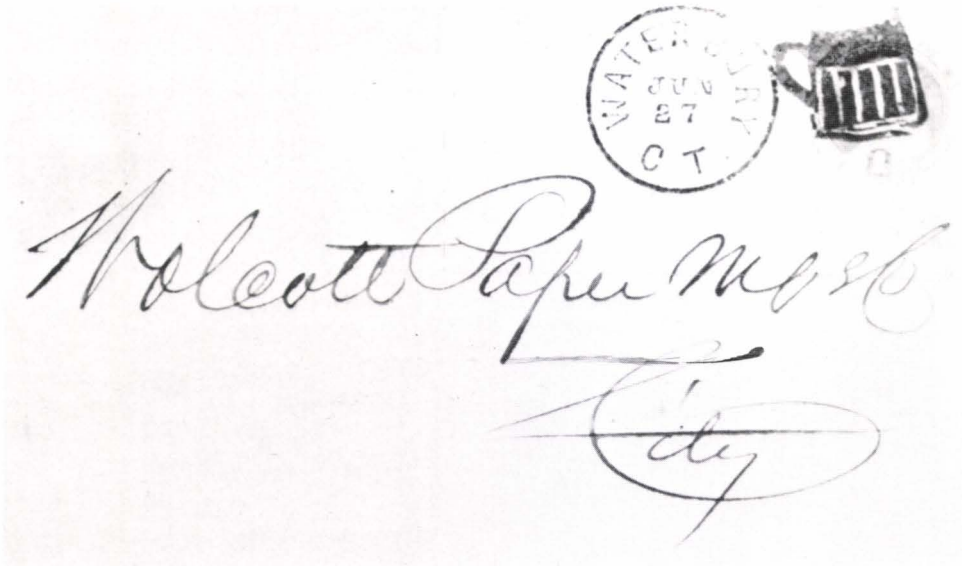 WATERBURY
JUN
27
CT.
Wolcott Paper Mg
City